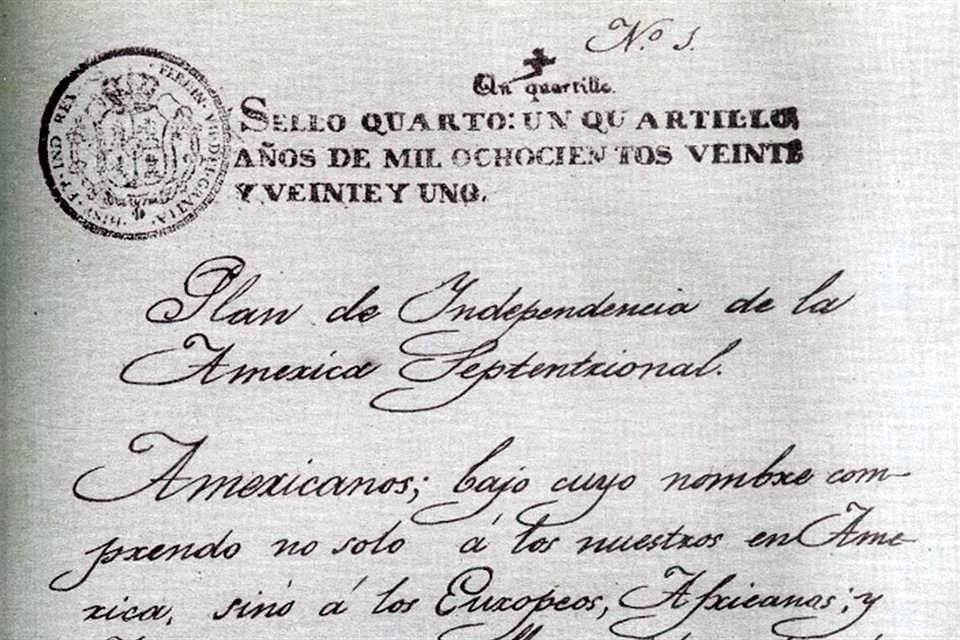 Nº 1.
Un quartillo.
SELLO QUARTO: UN QUARTILLO,
AÑOS DE MIL OCHOCIENTOS VEINTE
Y VEINTE Y UNO.
Plan de Independencia de la
America Septentrional.
Americanos; bajo cuyo nombre com-
prendo no solo á los nuestros en Ame-
rica, sino á los Europeos, Africanos; y